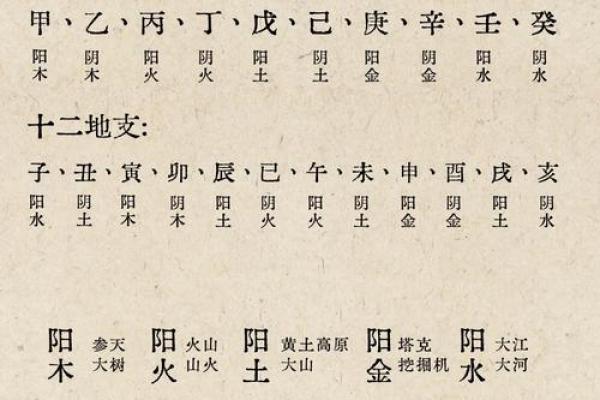 甲、乙、丙、丁、戊、己、庚、辛、壬、癸
阳木 阴木 阳火 阴火 阳土 阴土 阳金 阴金 阳水 阴水
十二地支:
子、丑、寅、卯、辰、巳、午、未、申、酉、戌、亥
阳水 阴土 阳木 阴木 阳土 阴火 阳火 阴土 阳金 阴金 阳土 阴水
阳木 参天大树 阳火 火山山火 阳土 黄土高原大山 阳金 塔克挖掘机 阳水 大江大河